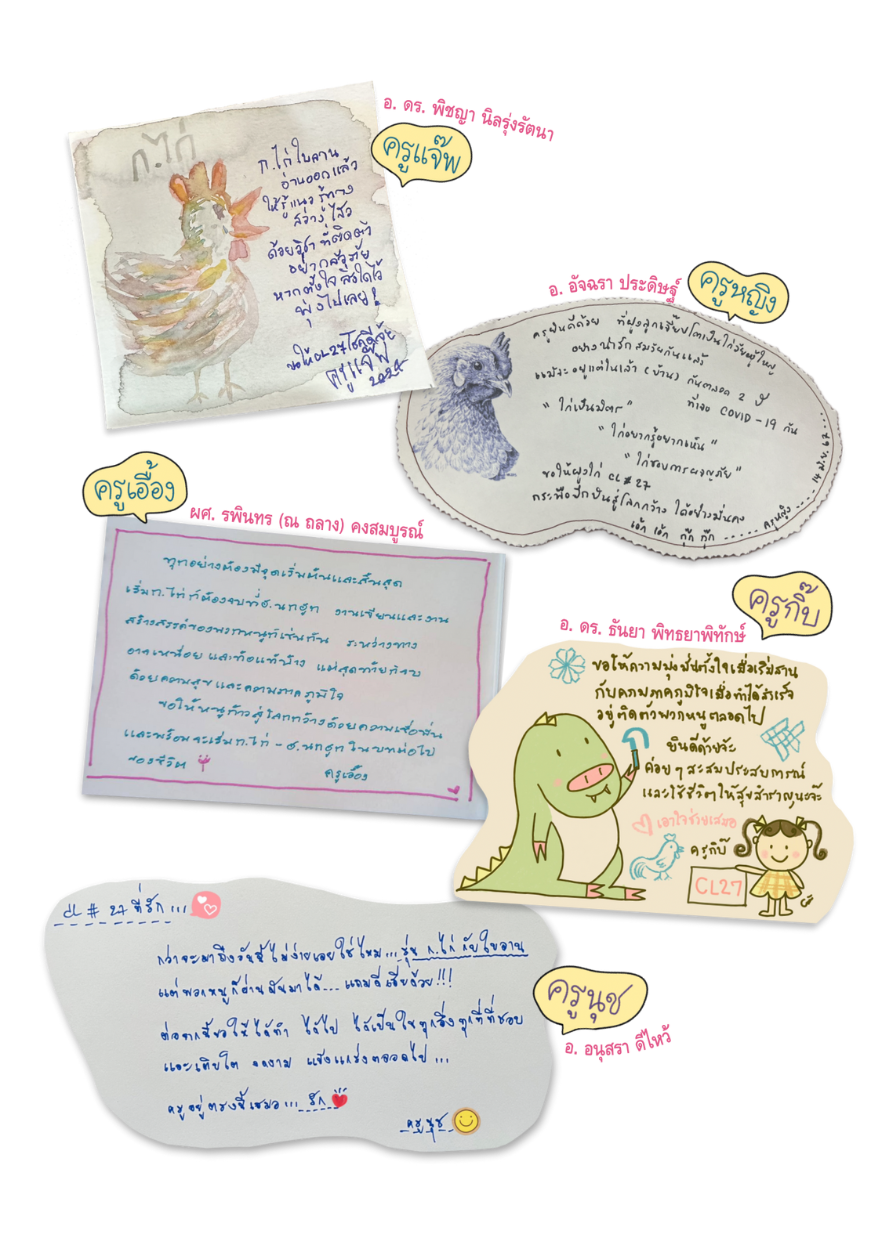 อ. ดร. พิชญา นิลรุ่งรัตนา
ครูแจ๊พ
ก.ไก่
ก.ไก่ใบลาน
อ่านออกแล้ว
ให้รู้แนว รู้ทาง
สว่างไสว
ด้วยวิชา ที่ติดตัว
อย่ากลัวภัย
หากตั้งใจ สิ่งใดไว้
พุ่งไปเลย!
ขอให้ CL27 โชคดีจ้ะ
ครูแจ๊พ
2024
อ. อัจฉรา ประดิษฐ์
ครูหญิง
ครูยินดีด้วย ที่ฝูงลูกเจี๊ยบโตเป็นไก่วัยผู้ใหญ่
อย่างน่ารักสมวัยกันแล้ว
แม้จะอยู่แต่ในเล้า (บ้าน) กันตลอด 2 ปี
ที่เจอ COVID-19 กัน
" ไก่เป็นมิตร "
" ไก่อยากรู้อยากเห็น "
" ไก่ชอบการผจญภัย "
ขอให้ฝูงไก่ CL#27
กระพือปีกบินสู่โลกกว้าง ได้อย่างมั่นคง
เอ้ก เอ้ก กุ๊ก กุ๊ก ...... ครูหญิง ....
ครูเอื้อง
ผศ. รพินทร (ณ ถลาง) คงสมบูรณ์
ทุกอย่างต้องมีจุดเริ่มต้นและสิ้นสุด
เริ่ม ก.ไก่ ก็ต้องจบที่ ฮ.นกฮูก งานเขียนและงาน
สร้างสรรค์ของพวกหนูก็เช่นกัน ระหว่างทาง
อาจเหนื่อย และท้อแท้บ้าง แต่สุดท้ายก็จบ
ด้วยความสุข และความภาคภูมิใจ
ขอให้หนูก้าวสู่โลกกว้างด้วยความเชื่อมั่น
และพร้อมจะเริ่ม ก.ไก่ - ฮ.นกฮูก ในบทต่อไป
ของชีวิต
ครูเอื้อง
ครูกิ๊บ
อ. ดร. ธันยา พิทธยาพิทักษ์
ขอให้ความมุ่งมั่นตั้งใจเมื่อเริ่มสาน
กับความภาคภูมิใจเมื่อทำได้สำเร็จ
อยู่ติดตัวพวกหนูตลอดไป
ก
ยินดีด้วยจ้ะ
ค่อย ๆ สะสมประสบการณ์
และใช้ชีวิตให้สุขสำราญนะจ๊ะ
เอาใจช่วยเสมอ
ครูกิ๊บ
CL27
CL # 27 ที่รัก ...
กว่าจะมาถึงวันนี้ ไม่ง่ายเลยใช่ไหม ... รุ่น ก.ไก่ กับใบลาน
แต่พวกหนูก็ผ่านมันมาได้ ... แถมดีเยี่ยมด้วย !!!
ต่อจากนี้ขอให้ ได้ทำ ได้ไป ได้เป็นในทุกสิ่ง ทุกที่ที่ชอบ
และเติบโต งดงาม แข็งแกร่งตลอดไป ...
ครูอยู่ตรงนี้เสมอ ... รัก
ครูนุช
ครูนุช
อ. อนุสรา ดีไหว้